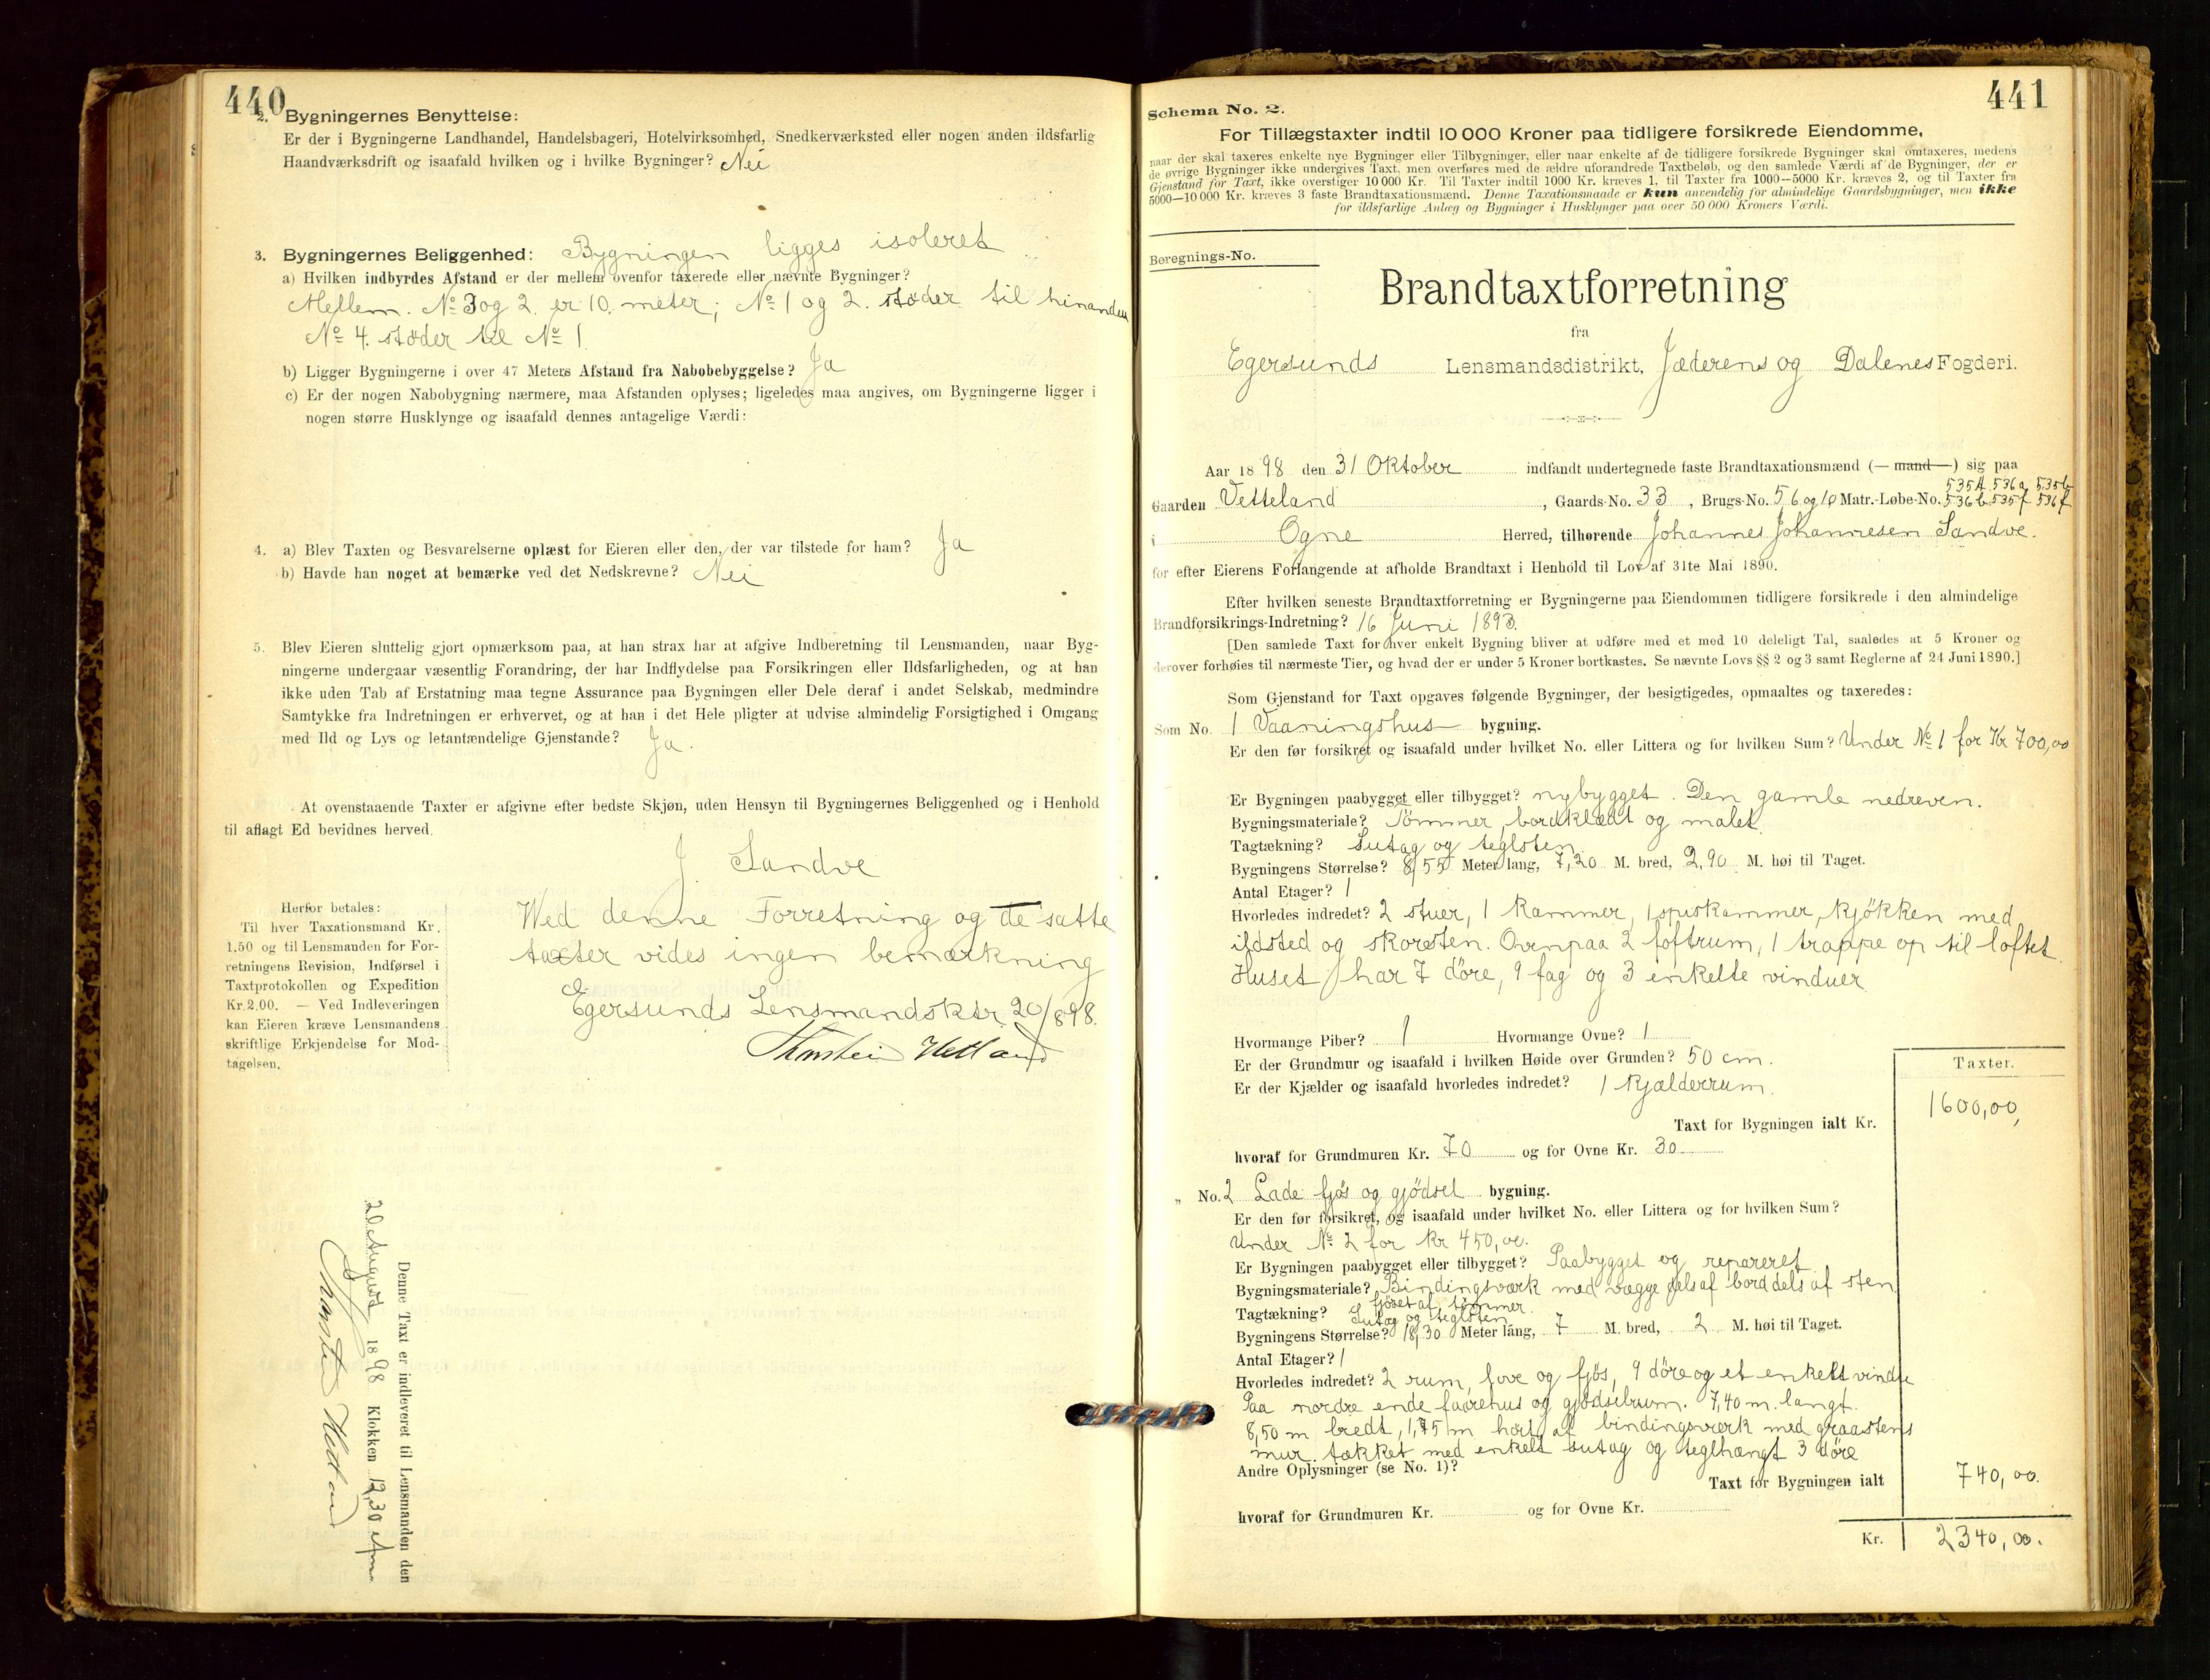 440
2. Bygningernes Benyttelse:
Er der i Bygningerne Landhandel, Handelsbageri, Hotelvirksomhed, Snedkerværksted eller nogen anden ildsfarlig
Haandværksdrift og isaafald hvilken og i hvilke Bygninger? Nei
3. Bygningernes Beliggenhed: Bygningen ligges isoleret
a) Hvilken indbyrdes Afstand er der mellem ovenfor taxerede eller nævnte Bygninger?
Mellem No 3 og 2 er 10 meter; No 1 og 2 støder til hinanden
No 4. støder til No 1
b) Ligger Bygningerne i over 47 Meters Afstand fra Nabobebyggelse? Ja
c) Er der nogen Nabobygning nærmere, maa Afstanden oplyses; ligeledes maa angives, om Bygningerne ligger i
nogen større Husklynge og isaafald dennes antagelige Værdi:
4. a) Blev Taxten og Besvarelserne oplæst for Eieren eller den, der var tilstede for ham? Ja
b) Havde han noget at bemærke ved det Nedskrevne? Nei
5. Blev Eieren sluttelig gjort opmærksom paa, at han strax har at afgive Indberetning til Lensmanden, naar Byg-
ningerne undergaar væsentlig Forandring, der har Indflydelse paa Forsikringen eller Ildsfarligheden, og at han
ikke uden Tab af Erstatning maa tegne Assurance paa Bygningen eller Dele deraf i andet Selskab, medmindre
Samtykke fra Indretningen er erhvervet, og at han i det Hele pligter at udvise almindelig Forsigtighed i Omgang
med Ild og Lys og letantændelige Gjenstande? Ja.
At ovenstaaende Taxter er afgivne efter bedste Skjøn, uden Hensyn til Bygningernes Beliggenhed og i Henhold
til aflagt Ed bevidnes herved.
J Sandve
Herfor betales:
Til hver Taxationsmand Kr.
1.50 og til Lensmanden for For-
retningens Revision, Indførsel i
Taxtprotokollen og Expedition
Kr. 2.00. — Ved Indleveringen
kan Eieren kræve Lensmandens
skriftlige Erkjendelse for Mod-
tagelsen.
Wed denne Forretning og de satte
taxter vides ingen bemærkning
Egersunds Lensmandsktr. 20/8 98.
Thorstein Hetland
Denne Taxt er indleveret til Lensmanden den
20 August 1898 Klokken 12,30 efm
Thorstein Hetland
441
Schema No. 2.
For Tillægstaxter indtil 10 000 Kroner paa tidligere forsikrede Eiendomme,
naar der skal taxeres enkelte nye Bygninger eller Tilbygninger, eller naar enkelte af de tidligere forsikrede Bygninger skal omtaxeres, medens
de øvrige Bygninger ikke undergives Taxt, men overføres med de ældre uforandrede Taxtbeløb, og den samlede Værdi af de Bygninger, der er
Gjenstand for Taxt, ikke overstiger 10 000 Kr. Til Taxter indtil 1000 Kr. kræves 1, til Taxter fra 1000—5000 Kr. kræves 2, og til Taxter fra
5000—10 000 Kr. kræves 3 faste Brandtaxationsmænd. Denne Taxationsmaade er kun anvendelig for almindelige Gaardsbygninger, men ikke
for ildsfarlige Anlæg og Bygninger i Husklynger paa over 50 000 Kroners Værdi.
Beregnings-No.
Brandtaxtforretning
fra
Egersunds Lensmandsdistrikt, Jæderens og Dalenes Fogderi.
Aar 1898 den 31 Oktober indfandt undertegnede faste Brandtaxationsmænd (— mand —) sig paa
535A 536a 535b
Gaarden Vetteland, Gaards-No. 33, Brugs-No. 5,6 og 10 Matr.-Løbe-No. 536b 535f 536f
i Ogne Herred, tilhørende Johannes Johannesen Sandve.
for efter Eierens Forlangende at afholde Brandtaxt i Henhold til Lov af 31te Mai 1890.
Efter hvilken seneste Brandtaxtforretning er Bygningerne paa Eiendommen tidligere forsikrede i den almindelige
Brandforsikrings-Indretning? 16 Juni 1893.
[Den samlede Taxt for hver enkelt Bygning bliver at udføre med et med 10 deleligt Tal, saaledes at 5 Kroner og
derover forhøies til nærmeste Tier, og hvad der er under 5 Kroner bortkastes. Se nævnte Lovs §§ 2 og 3 samt Reglerne af 24 Juni 1890.]
Som Gjenstand for Taxt opgaves følgende Bygninger, der besigtigedes, opmaaltes og taxeredes:
Som No. 1 Vaaningshus bygning.
Er den før forsikret og isaafald under hvilket No. eller Littera og for hvilken Sum? Under No 1 for Kr 700,00
Er Bygningen paabygget eller tilbygget? nybygget. Den gamle nedreven.
Bygningsmateriale? Tømmer, bordklædt og malet.
Tagtækning? Sutag og teglsten
Bygningens Størrelse? 8,55 Meter lang, 7,20 M. bred, 2,90 M. høi til Taget.
Antal Etager? 1
Hvorledes indredet? 2 stuer, 1 kammer, 1 spiskammer, kjøkken med
ildsted og skorsten. Ovenpaa 2 loftrum, 1 trappe op til loftet.
Huset har 7 døre, 9 fag og 3 enkelte vinduer
Hvormange Piber? 1 Hvormange Ovne? 1
Er der Grundmur og isaafald i hvilken Høide over Grunden? 50 cm.
Er der Kjælder og isaafald hvorledes indredet? 1 kjælderrum.
Taxter.
Taxt for Bygningen ialt Kr. 1600,00,
hvoraf for Grundmuren Kr. 70 og for Ovne Kr. 30
" No. 2 Lade fjøs og gjødsel bygning.
Er den før forsikret, og isaafald under hvilket No. eller Littera og for hvilken Sum?
Under No 2 for kr 450,00.
Er Bygningen paabygget eller tilbygget? Paabygget og repareret
Bygningsmateriale? Bindingsværk med vægge dels af bord dels af sten
fjøset af tømmer.
Tagtækning? Sutag og teglsten
Bygningens Størrelse? 18,30 Meter lang, 7 M. bred, 2 M. høi til Taget.
Antal Etager? 1
Hvorledes indredet? 2 rum, love og fjøs, 9 døre og et enkelt vindu
Paa nordre ende faarehus og gjødselrum. 7,40 m. langt.
8,50 m bredt, 1,75 m høit af bindingsverk med graastens
mur. tækket med enkelt sutag og teglhængt 3 døre
Andre Oplysninger (se No. 1)?
Taxt for Bygningen ialt 740,00.
hvoraf for Grundmuren Kr. og for Ovne Kr.
Kr. 2340,00.